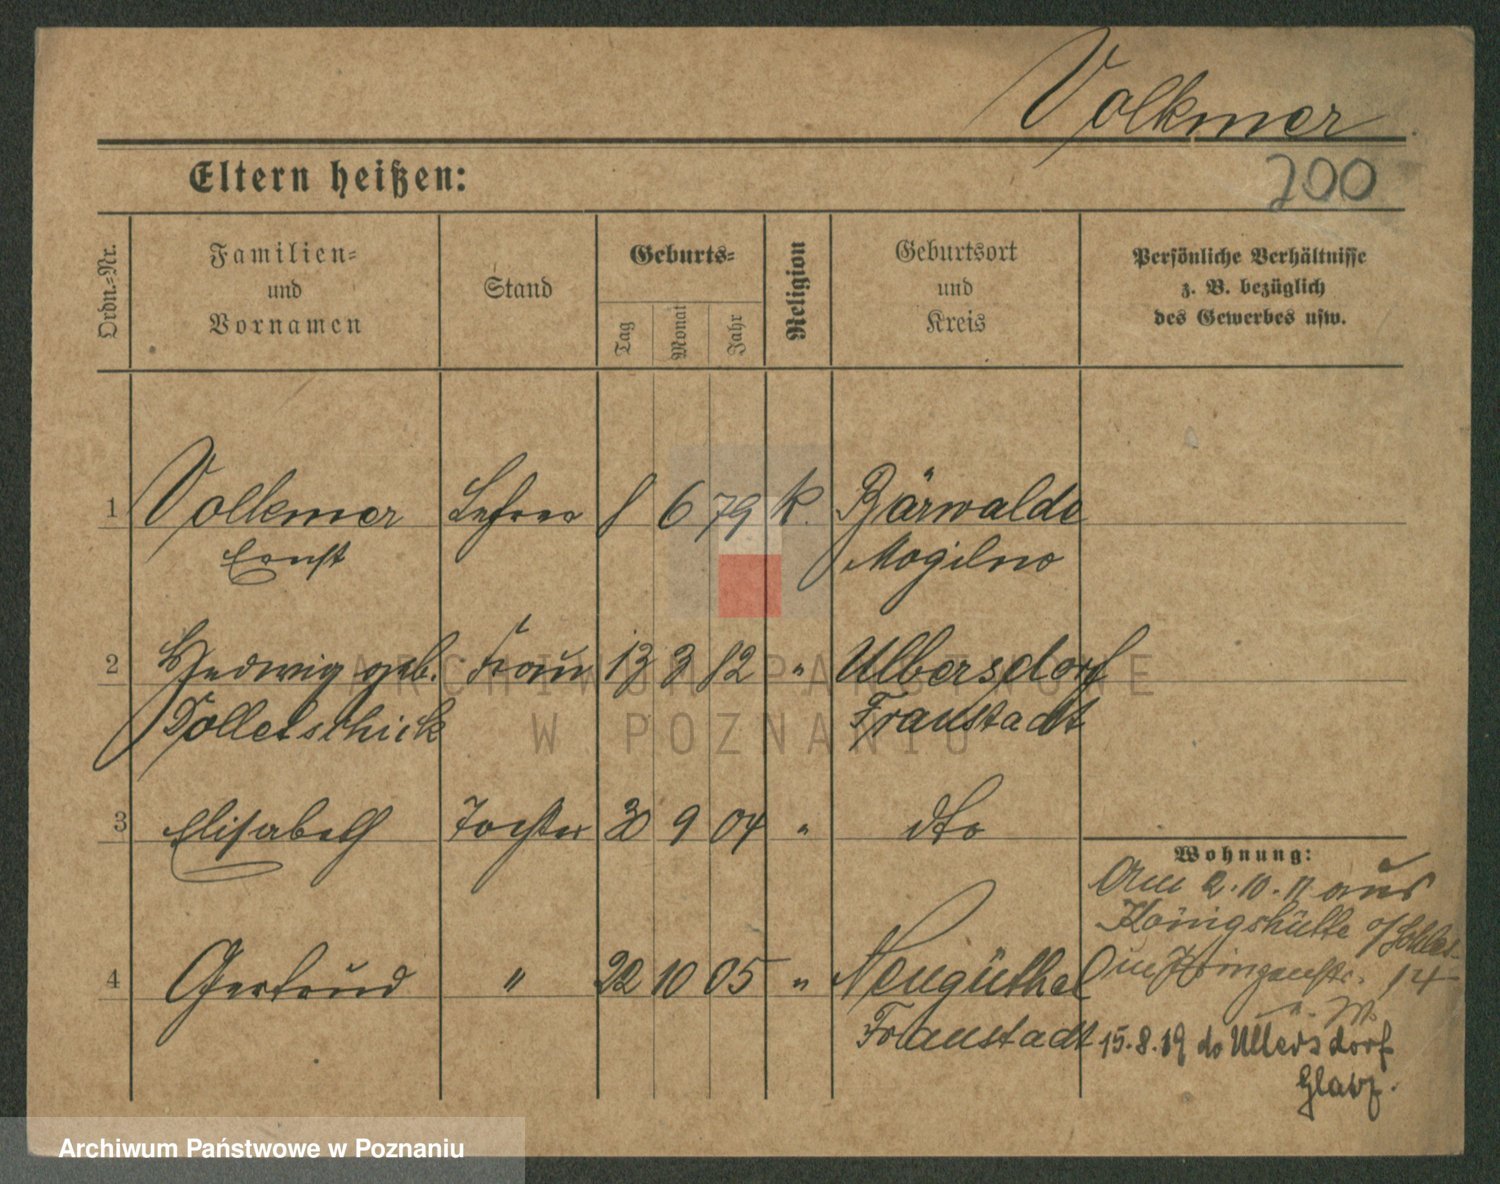 Volkmer
Eltern heißen:
200
Ordn.-Nr.
Familien-
und
Vornamen
Stand
Geburts-
Tag
Monat
Jahr
Religion
Geburtsort
und
Kreis
Persönliche Verhältnisse
z. B. bezüglich
des Gewerbes usw.
1 Volkmer Lehrer 8 6 79 K. Bärwalde
Ernst Mogilno
2 Hedwig geb. Frau 13 3 82 " Ulbersdorf
Dolletschick Fraustadt
3 Elisabeth Tochter 30 9 04 " dto
Wohnung:
Am 2.10.11 aus
Königshütte o/Schles.
4 Gertrud " 22 10 05 " Neugüthel
14
Fraustadt
15.8.19 do Ullersdorf
Glatz.
ARCHIWUM PAŃSTWOWE
W POZNANIU
Archiwum Państwowe w Poznaniu